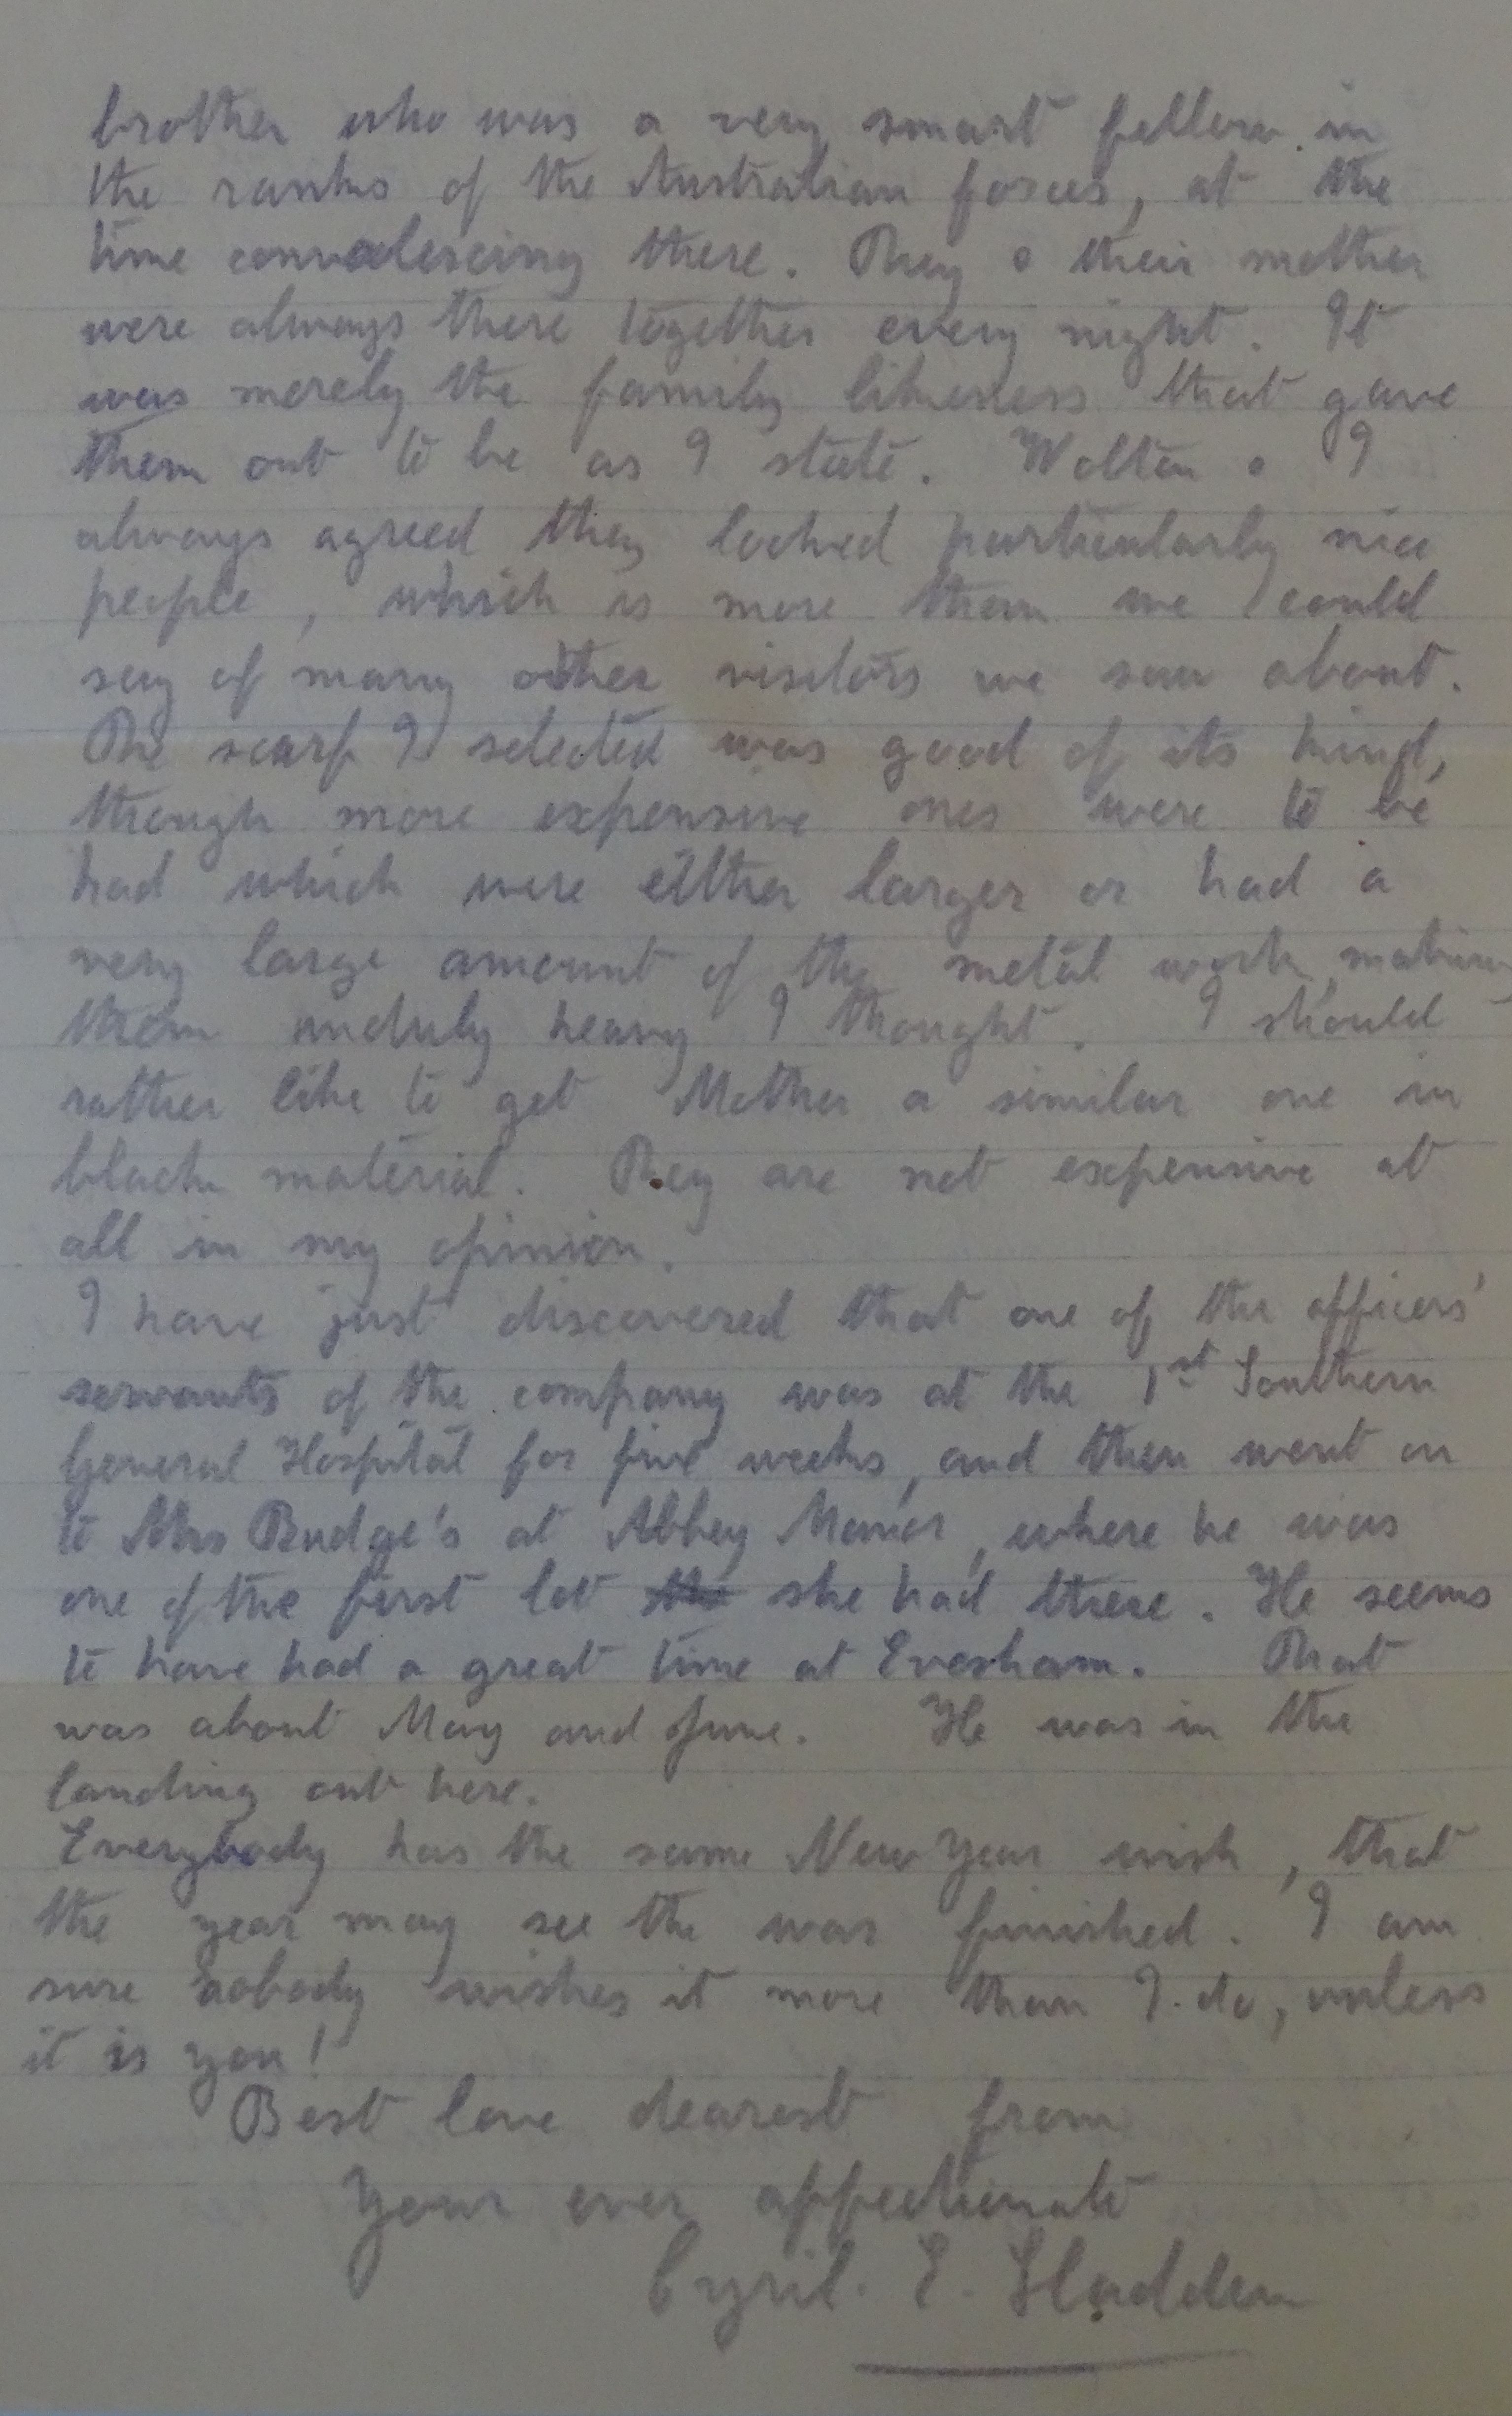 brother who was a very smart fellow in
the ranks of the Australian forces, at the
time convalescing there. They & their mother
were always there together every night. It
was merely the family likeness that gave
them out to be as I state. Wolton & I
always agreed they looked particularly nice
people, which is more than we could
say of many other visitors we saw about.
The scarf I selected was good of its kind,
though more expensive ones were to be
had which were either larger or had a
very large amount of the metal work, making
them unduly heavy I thought. I should
rather like to get Mother a similar one in
black material. They are not expensive at
all in my opinion.
I have just discovered that one of the officers'
servants of the company was at the 1st Southern
General Hospital for five weeks, and then went on
to Mrs Rudge's at Abbey Manor, where he was
one of the first lot the she had there. He seems
to have had a great time at Evesham. That
was about May and June. He was in the
landing out here.
Everybody has the same New Year wish, that
the year may see the war finished. I am
sure nobody wishes it more than I do, unless
it is you!
Best love dearest from
Your ever affectionate
Cyril. E. Sladden